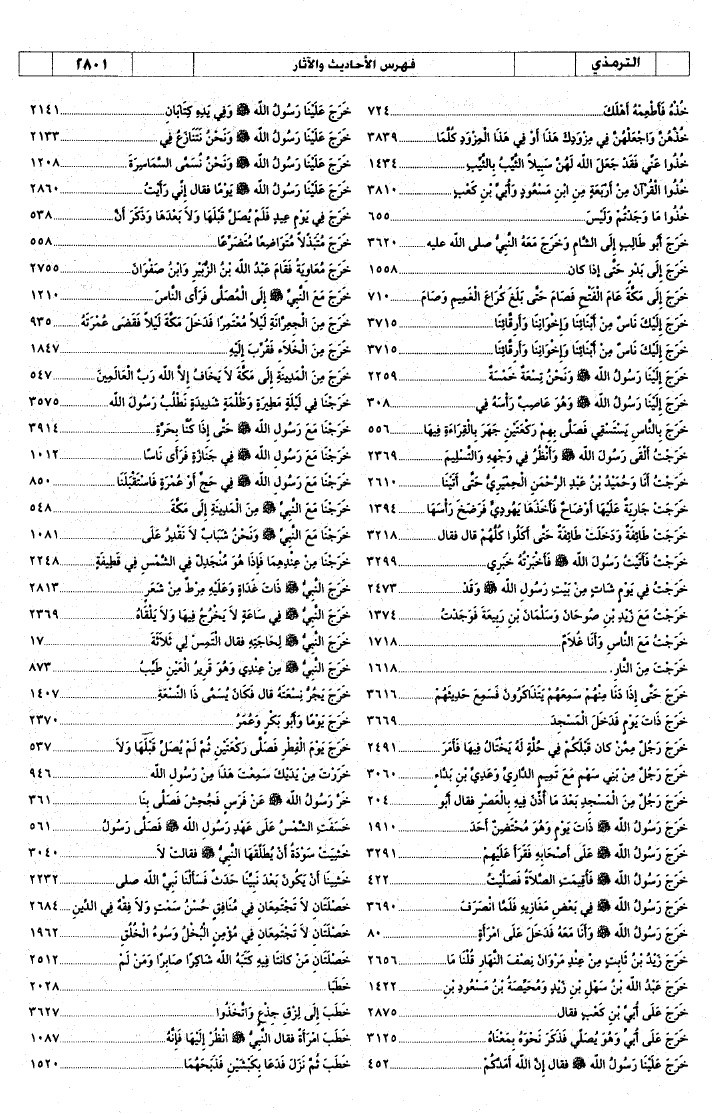 الترمذي
فهرس الأحاديث والآثار
٢٨٠١
خُذْهُ فَأَطْعِمْهُ أَهْلَكَ ........ ٧٢٤
خُذْهُنَّ وَاجْعَلْهُنَّ فِي مِزْوَدِكَ هَذَا أَوْ فِي هَذَا الْمِزْوَدِ كُلَّمَا ........ ٣٨٣٩
خُذُوا عَنِّي فَقَدْ جَعَلَ الله لَهُنَّ سَبِيلاً الثَّيِّبُ بِالثَّيِّبِ ........ ١٤٣٤
خُذُوا الْقُرْآنَ مِنْ أَرْبَعَةٍ مِنِ ابْنِ مَسْعُودٍ وَأُبَيِّ بْنِ كَعْبٍ ........ ٣٨١٠
خُذُوا مَا وَجَدْتُمْ وَلَيْسَ ........ ٦٥٥
خَرَجَ أَبُو طَالِبٍ إِلَى الشَّامِ وَخَرَجَ مَعَهُ النَّبِيُّ صلى الله عليه ........ ٣٦٢٠
خَرَجَ إِلَى بَدْرٍ حَتَّى إذا كان ........ ١٥٥٨
خَرَجَ إِلَى مَكَّةَ عَامَ الْفَتْحِ فَصَامَ حَتَّى بَلَغَ كُرَاعَ الْغَمِيمِ وَصَامَ ........ ٧١٠
خَرَجَ إِلَيْكَ نَاسٌ مِنْ أَبْنَائِنَا وَإِخْوَانِنَا وَأَرِقَّائِنَا ........ ٣٧١٥
خَرَجَ إِلَيْكَ نَاسٌ مِنْ أَبْنَائِنَا وَإِخْوَانِنَا وَأَرِقَّائِنَا ........ ٣٧١٥
خَرَجَ إِلَيْنَا رَسُولُ الله ﷺ وَنَحْنُ تِسْعَةٌ خَمْسَةٌ ........ ٢٢٥٩
خَرَجَ إِلَيْنَا رَسُولُ الله ﷺ وَهُوَ عَاصِبٌ رَأْسَهُ فِي ........ ٣٠٨
خَرَجَ بِالنَّاسِ يَسْتَسْقِي فَصَلَّى بِهِمْ رَكْعَتَيْنِ جَهَرَ بِالْقِرَاءَةِ فِيهَا ........ ٥٥٦
خَرَجْتُ أَلْقَى رَسُولَ الله ﷺ وَأَنْظُرُ فِي وَجْهِهِ وَالتَّسْلِيمَ ........ ٢٣٦٩
خَرَجْتُ أَنَا وَحُمَيْدُ بْنُ عَبْدِ الرَّحْمَنِ الْحِمْيَرِيُّ حَتَّى أَتَيْنَا ........ ٢٦١٠
خَرَجَتْ جَارِيَةٌ عَلَيْهَا أَوْضَاحٌ فَأَخَذَهَا يَهُودِيٌّ فَرَضَخَ رَأْسَهَا ........ ١٣٩٤
خَرَجَتْ طَائِفَةٌ وَدَخَلَتْ طَائِفَةٌ حَتَّى أَكَلُوا كُلُّهُمْ قال فقال ........ ٣٢١٨
خَرَجْتُ فَأَتَيْتُ رَسُولَ الله ﷺ فَأَخْبَرْتُهُ خَبَرِي ........ ٣٢٩٩
خَرَجْتُ فِي يَوْمٍ شَاتٍ مِنْ بَيْتِ رَسُولِ الله ﷺ وَقَدْ ........ ٢٤٧٣
خَرَجْتُ مَعَ زَيْدِ بْنِ صُوحَانَ وَسَلْمَانَ بْنِ رَبِيعَةَ فَوَجَدْتُ ........ ١٣٧٤
خَرَجْتُ مَعَ النَّاسِ وَأَنَا غُلاَمٌ ........ ١٧١٨
خَرَجْتَ مِنَ النَّارِ. ........ ١٦١٨
خَرَجَ حَتَّى إِذَا دَنَا مِنْهُمْ سَمِعَهُمْ يَتَذَاكَرُونَ فَسَمِعَ حَدِيثَهُمْ ........ ٣٦١٦
خَرَجَ ذَاتَ يَوْمٍ فَدَخَلَ الْمَسْجِدَ ........ ٣٦٦٩
خَرَجَ رَجُلٌ مِمَّنْ كان قَبْلَكُمْ فِي حُلَّةٍ لَهُ يَخْتَالُ فِيهَا فَأَمَرَ ........ ٢٤٩١
خَرَجَ رَجُلٌ مِنْ بَنِي سَهْمٍ مَعَ تَمِيمٍ الدَّارِيِّ وَعَدِيِّ بْنِ بَدَّاءٍ ........ ٣٠٦٠
خَرَجَ رَجُلٌ مِنَ الْمَسْجِدِ بَعْدَ مَا أُذِّنَ فِيهِ بِالْعَصْرِ فقال أَبُو ........ ٢٠٤
خَرَجَ رَسُولُ الله ﷺ ذَاتَ يَوْمٍ وَهُوَ مُحْتَضِنٌ أَحَدَ ........ ١٩١٠
خَرَجَ رَسُولُ الله ﷺ عَلَى أَصْحَابِهِ فَقَرَأَ عَلَيْهِمْ ........ ٣٢٩١
خَرَجَ رَسُولُ الله ﷺ فَأُقِيمَتِ الصَّلاَةُ فَصَلَّيْتُ ........ ٤٢٢
خَرَجَ رَسُولُ الله ﷺ فِي بَعْضِ مَغَازِيهِ فَلَمَّا انْصَرَفَ ........ ٣٦٩٠
خَرَجَ رَسُولُ الله ﷺ وَأَنَا مَعَهُ فَدَخَلَ عَلَى امْرَأَةٍ ........ ٨٠
خَرَجَ زَيْدُ بْنُ ثَابِتٍ مِنْ عِنْدِ مَرْوَانَ نِصْفَ النَّهَارِ قُلْنَا مَا ........ ٢٦٥٦
خَرَجَ عَبْدُ الله بْنُ سَهْلِ بْنِ زَيْدٍ وَمُحَيِّصَةُ بْنُ مَسْعُودِ بْنِ ........ ١٤٢٢
خَرَجَ عَلَى أُبَيِّ بْنِ كَعْبٍ فقال ........ ٢٨٧٥
خَرَجَ عَلَى أُبَيٍّ وَهُوَ يُصَلِّي فَذَكَرَ نَحْوَهُ بِمَعْنَاهُ ........ ٣١٢٥
خَرَجَ عَلَيْنَا رَسُولُ الله ﷺ فقال إِنَّ الله أَمَدَّكُمْ ........ ٤٥٢
خَرَجَ عَلَيْنَا رَسُولُ الله ﷺ وَفِي يَدِهِ كِتَابَانِ ........ ٢١٤١
خَرَجَ عَلَيْنَا رَسُولُ الله ﷺ وَنَحْنُ نَتَنَازَعُ فِي ........ ٢١٣٣
خَرَجَ عَلَيْنَا رَسُولُ الله ﷺ وَنَحْنُ نُسَمَّى السَّمَاسِرَةَ ........ ١٢٠٨
خَرَجَ عَلَيْنَا رَسُولُ الله ﷺ يَوْمًا فقال إِنِّي رَأَيْتُ ........ ٢٨٦٠
خَرَجَ فِي يَوْمِ عِيدٍ فَلَمْ يُصَلِّ قَبْلَهَا وَلاَ بَعْدَهَا وَذَكَرَ أَنَّ ........ ٥٣٨
خَرَجَ مُتَبَذِّلاً مُتَوَاضِعًا مُتَضَرِّعًا ........ ٥٥٨
خَرَجَ مُعَاوِيَةُ فَقَامَ عَبْدُ الله بْنُ الزُّبَيْرِ وَابْنُ صَفْوَانَ ........ ٢٧٥٥
خَرَجَ مَعَ النَّبِيِّ ﷺ إِلَى الْمُصَلَّى فَرَأَى النَّاسَ ........ ١٢١٠
خَرَجَ مِنَ الْجِعِرَّانَةِ لَيْلاً مُعْتَمِرًا فَدَخَلَ مَكَّةَ لَيْلاً فَقَضَى عُمْرَتَهُ ........ ٩٣٥
خَرَجَ مِنَ الْخَلاَءِ فَقُرِّبَ إِلَيْهِ ........ ١٨٤٧
خَرَجَ مِنَ الْمَدِينَةِ إِلَى مَكَّةَ لاَ يَخَافُ إِلاَّ الله رَبَّ الْعَالَمِينَ ........ ٥٤٧
خَرَجْنَا فِي لَيْلَةٍ مَطِيرَةٍ وَظُلْمَةٍ شَدِيدَةٍ نَطْلُبُ رَسُولَ الله ........ ٣٥٧٥
خَرَجْنَا مَعَ رَسُولِ الله ﷺ حَتَّى إِذَا كُنَّا بِحَرَّةِ ........ ٣٩١٤
خَرَجْنَا مَعَ رَسُولِ الله ﷺ فِي جَنَازَةٍ فَرَأَى نَاسًا ........ ١٠١٢
خَرَجْنَا مَعَ رَسُولِ الله ﷺ فِي حَجٍّ أَوْ عُمْرَةٍ فَاسْتَقْبَلَنَا ........ ٨٥٠
خَرَجْنَا مَعَ النَّبِيِّ ﷺ مِنَ الْمَدِينَةِ إِلَى مَكَّةَ ........ ٥٤٨
خَرَجْنَا مَعَ النَّبِيِّ ﷺ وَنَحْنُ شَبَابٌ لاَ نَقْدِرُ عَلَى ........ ١٠٨١
خَرَجْنَا مِنْ عِنْدِهِمَا فَإِذَا هُوَ مُنْجَدِلٌ فِي الشَّمْسِ فِي قَطِيفَةٍ ........ ٢٢٤٨
خَرَجَ النَّبِيُّ ﷺ ذَاتَ غَدَاةٍ وَعَلَيْهِ مِرْطٌ مِنْ شَعَرٍ ........ ٢٨١٣
خَرَجَ النَّبِيُّ ﷺ فِي سَاعَةٍ لاَ يَخْرُجُ فِيهَا وَلاَ يَلْقَاهُ ........ ٢٣٦٩
خَرَجَ النَّبِيُّ ﷺ لِحَاجَتِهِ فقال الْتَمِسْ لِي ثَلاَثَةَ ........ ١٧
خَرَجَ النَّبِيُّ ﷺ مِنْ عِنْدِي وَهُوَ قَرِيرُ الْعَيْنِ طَيِّبُ ........ ٨٧٣
خَرَجَ يَجُرُّ نِسْعَتَهُ قال فَكَانَ يُسَمَّى ذَا النِّسْعَةِ ........ ١٤٠٧
خَرَجَ يَوْمًا وَأَبُو بَكْرٍ وَعُمَرُ ........ ٢٣٧٠
خَرَجَ يَوْمَ الْفِطْرِ فَصَلَّى رَكْعَتَيْنِ ثُمَّ لَمْ يُصَلِّ قَبْلَهَا وَلاَ ........ ٥٣٧
خَرَرْتَ مِنْ يَدَيْكَ سَمِعْتَ هَذَا مِنْ رَسُولِ الله ........ ٩٤٦
خَرَّ رَسُولُ الله ﷺ عَنْ فَرَسٍ فَجُحِشَ فَصَلَّى بِنَا ........ ٣٦١
خَسَفَتِ الشَّمْسُ عَلَى عَهْدِ رَسُولِ الله ﷺ فَصَلَّى رَسُولُ ........ ٥٦١
خَشِيَتْ سَوْدَةُ أَنْ يُطَلِّقَهَا النَّبِيُّ ﷺ فقالت لاَ ........ ٣٠٤٠
خَشِينَا أَنْ يَكُونَ بَعْدَ نَبِيِّنَا حَدَثٌ فَسَأَلْنَا نَبِيَّ الله صلى ........ ٢٢٣٢
خَصْلَتَانِ لاَ تَجْتَمِعَانِ فِي مُنَافِقٍ حُسْنُ سَمْتٍ وَلاَ فِقْهٌ فِي الدِّينِ ........ ٢٦٨٤
خَصْلَتَانِ لاَ تَجْتَمِعَانِ فِي مُؤْمِنٍ الْبُخْلُ وَسُوءُ الْخُلُقِ ........ ١٩٦٢
خَصْلَتَانِ مَنْ كَانَتَا فِيهِ كَتَبَهُ الله شَاكِرًا صَابِرًا وَمَنْ لَمْ ........ ٢٥١٢
خَطَبَا ........ ٢٠٢٨
خَطَبَ إِلَى لِزْقِ جِذْعٍ وَاتَّخَذُوا ........ ٣٦٢٧
خَطَبَ امْرَأَةً فقال النَّبِيُّ ﷺ انْظُرْ إِلَيْهَا فَإِنَّهُ ........ ١٠٨٧
خَطَبَ ثُمَّ نَزَلَ فَدَعَا بِكَبْشَيْنِ فَذَبَحَهُمَا ........ ١٥٢٠